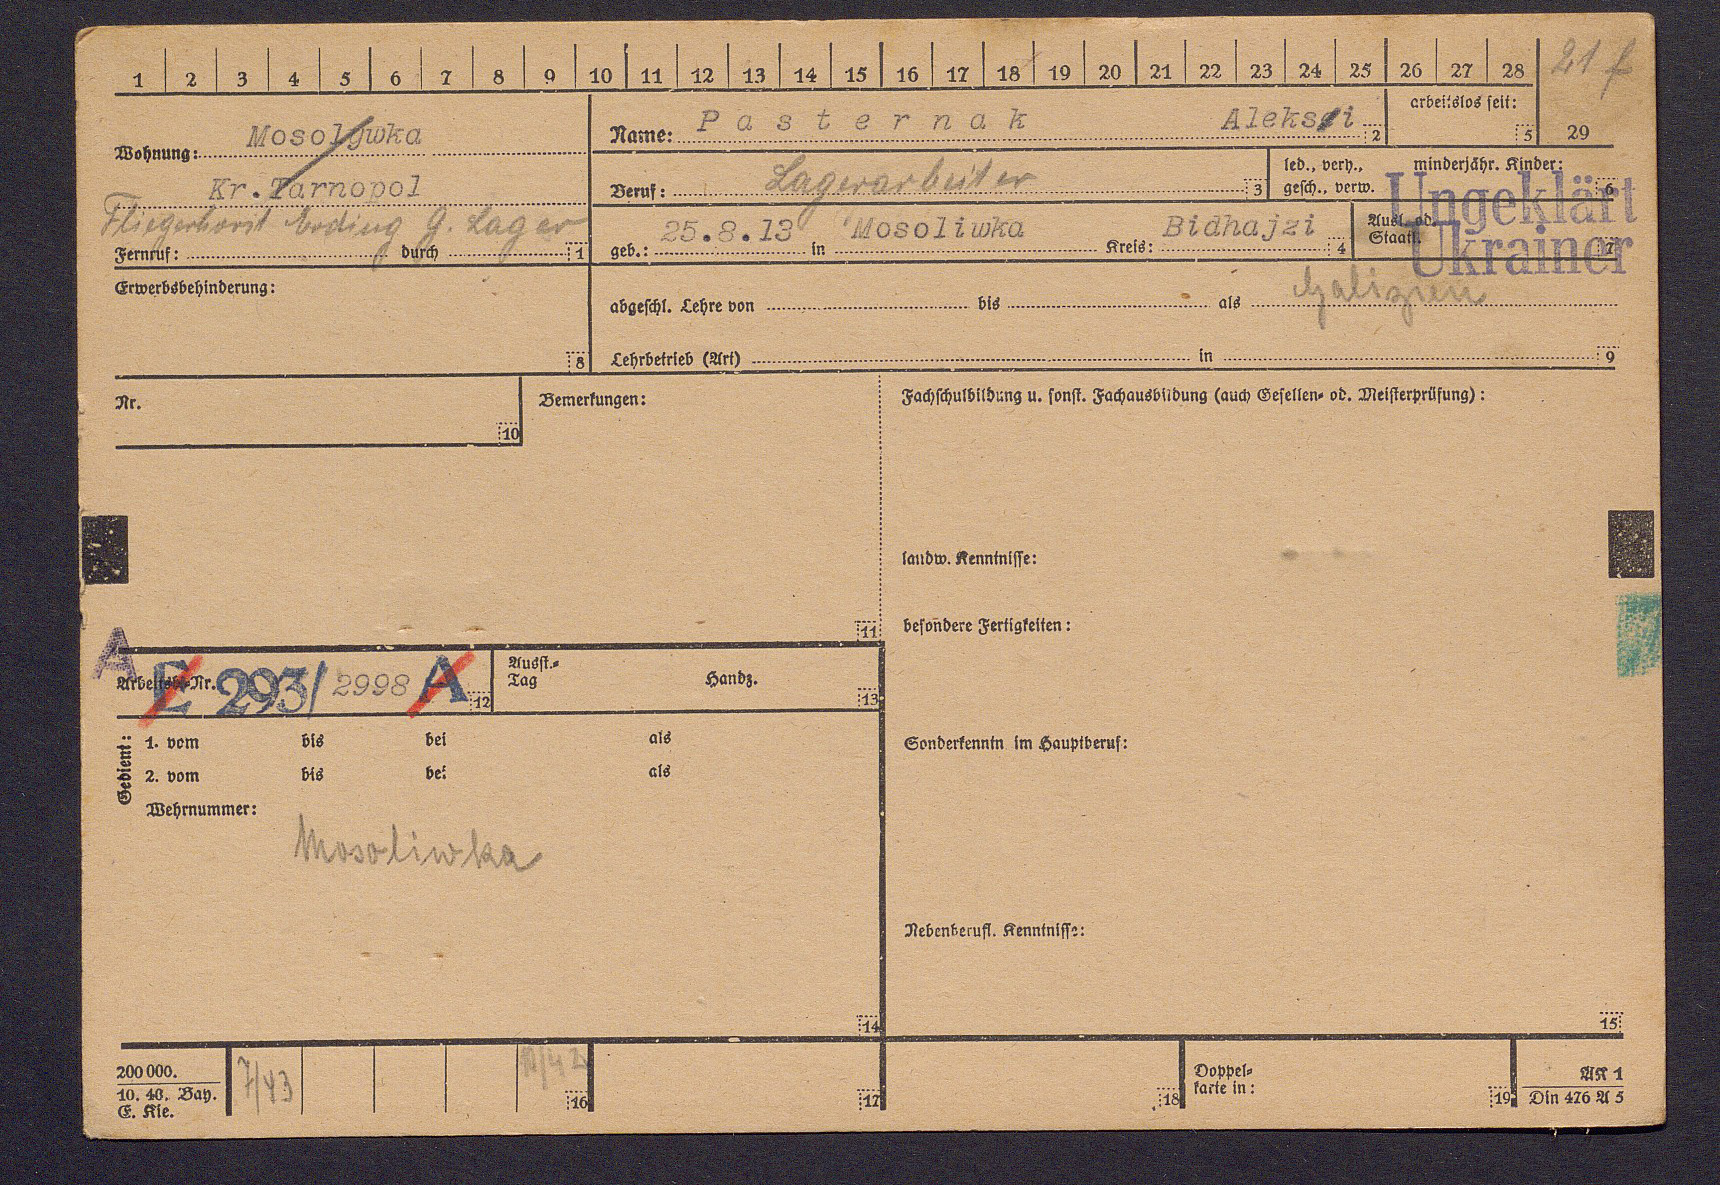 1 2 3 4 5 6 7 8 9 10 11 12 13 14 15 16 17 18 19 20 21 22 23 24 25 26 27 28 21 f
29
Wohnung: Mosolywka
Kr. Tarnopol
Fliegerhorst Erding G. Lager
Fernruf: durch 1
Name: Pasternak Aleksi 2
arbeitslos seit: 5
Beruf: Lagerarbeiter 3
led., verh., minderjähr. Kinder:
gesch., verw. 6
geb.: 25.8.13 in Mosoliwka Kreis: Bidhajzi 4
Ausl. od.
Staatl. 7
Ungeklärt
Ukrainer
Galizien
Erwerbsbehinderung:
8
abgeschl. Lehre von bis als
Lehrbetrieb (Art) in 9
Nr.
10
Bemerkungen:
11
Fachschulbildung u. sonst. Fachausbildung (auch Gesellen- od. Meisterprüfung):
landw. Kenntnisse:
besondere Fertigkeiten:
A
Arbeitsb.-Nr. E 293/ 2998 A 12
Ausst.-
Tag Handz. 13
Gedient:
1. vom bis bei als
2. vom bis bei als
Wehrnummer:
Mosoliwka
14
Sonderkenntn im Hauptberuf:
Nebenberufl. Kenntnisse:
15
200 000.
10. 40. Bay.
E. Kie.
7/43
16
17
18
Doppel-
karte in: 19
AK 1
Din 476 A 5